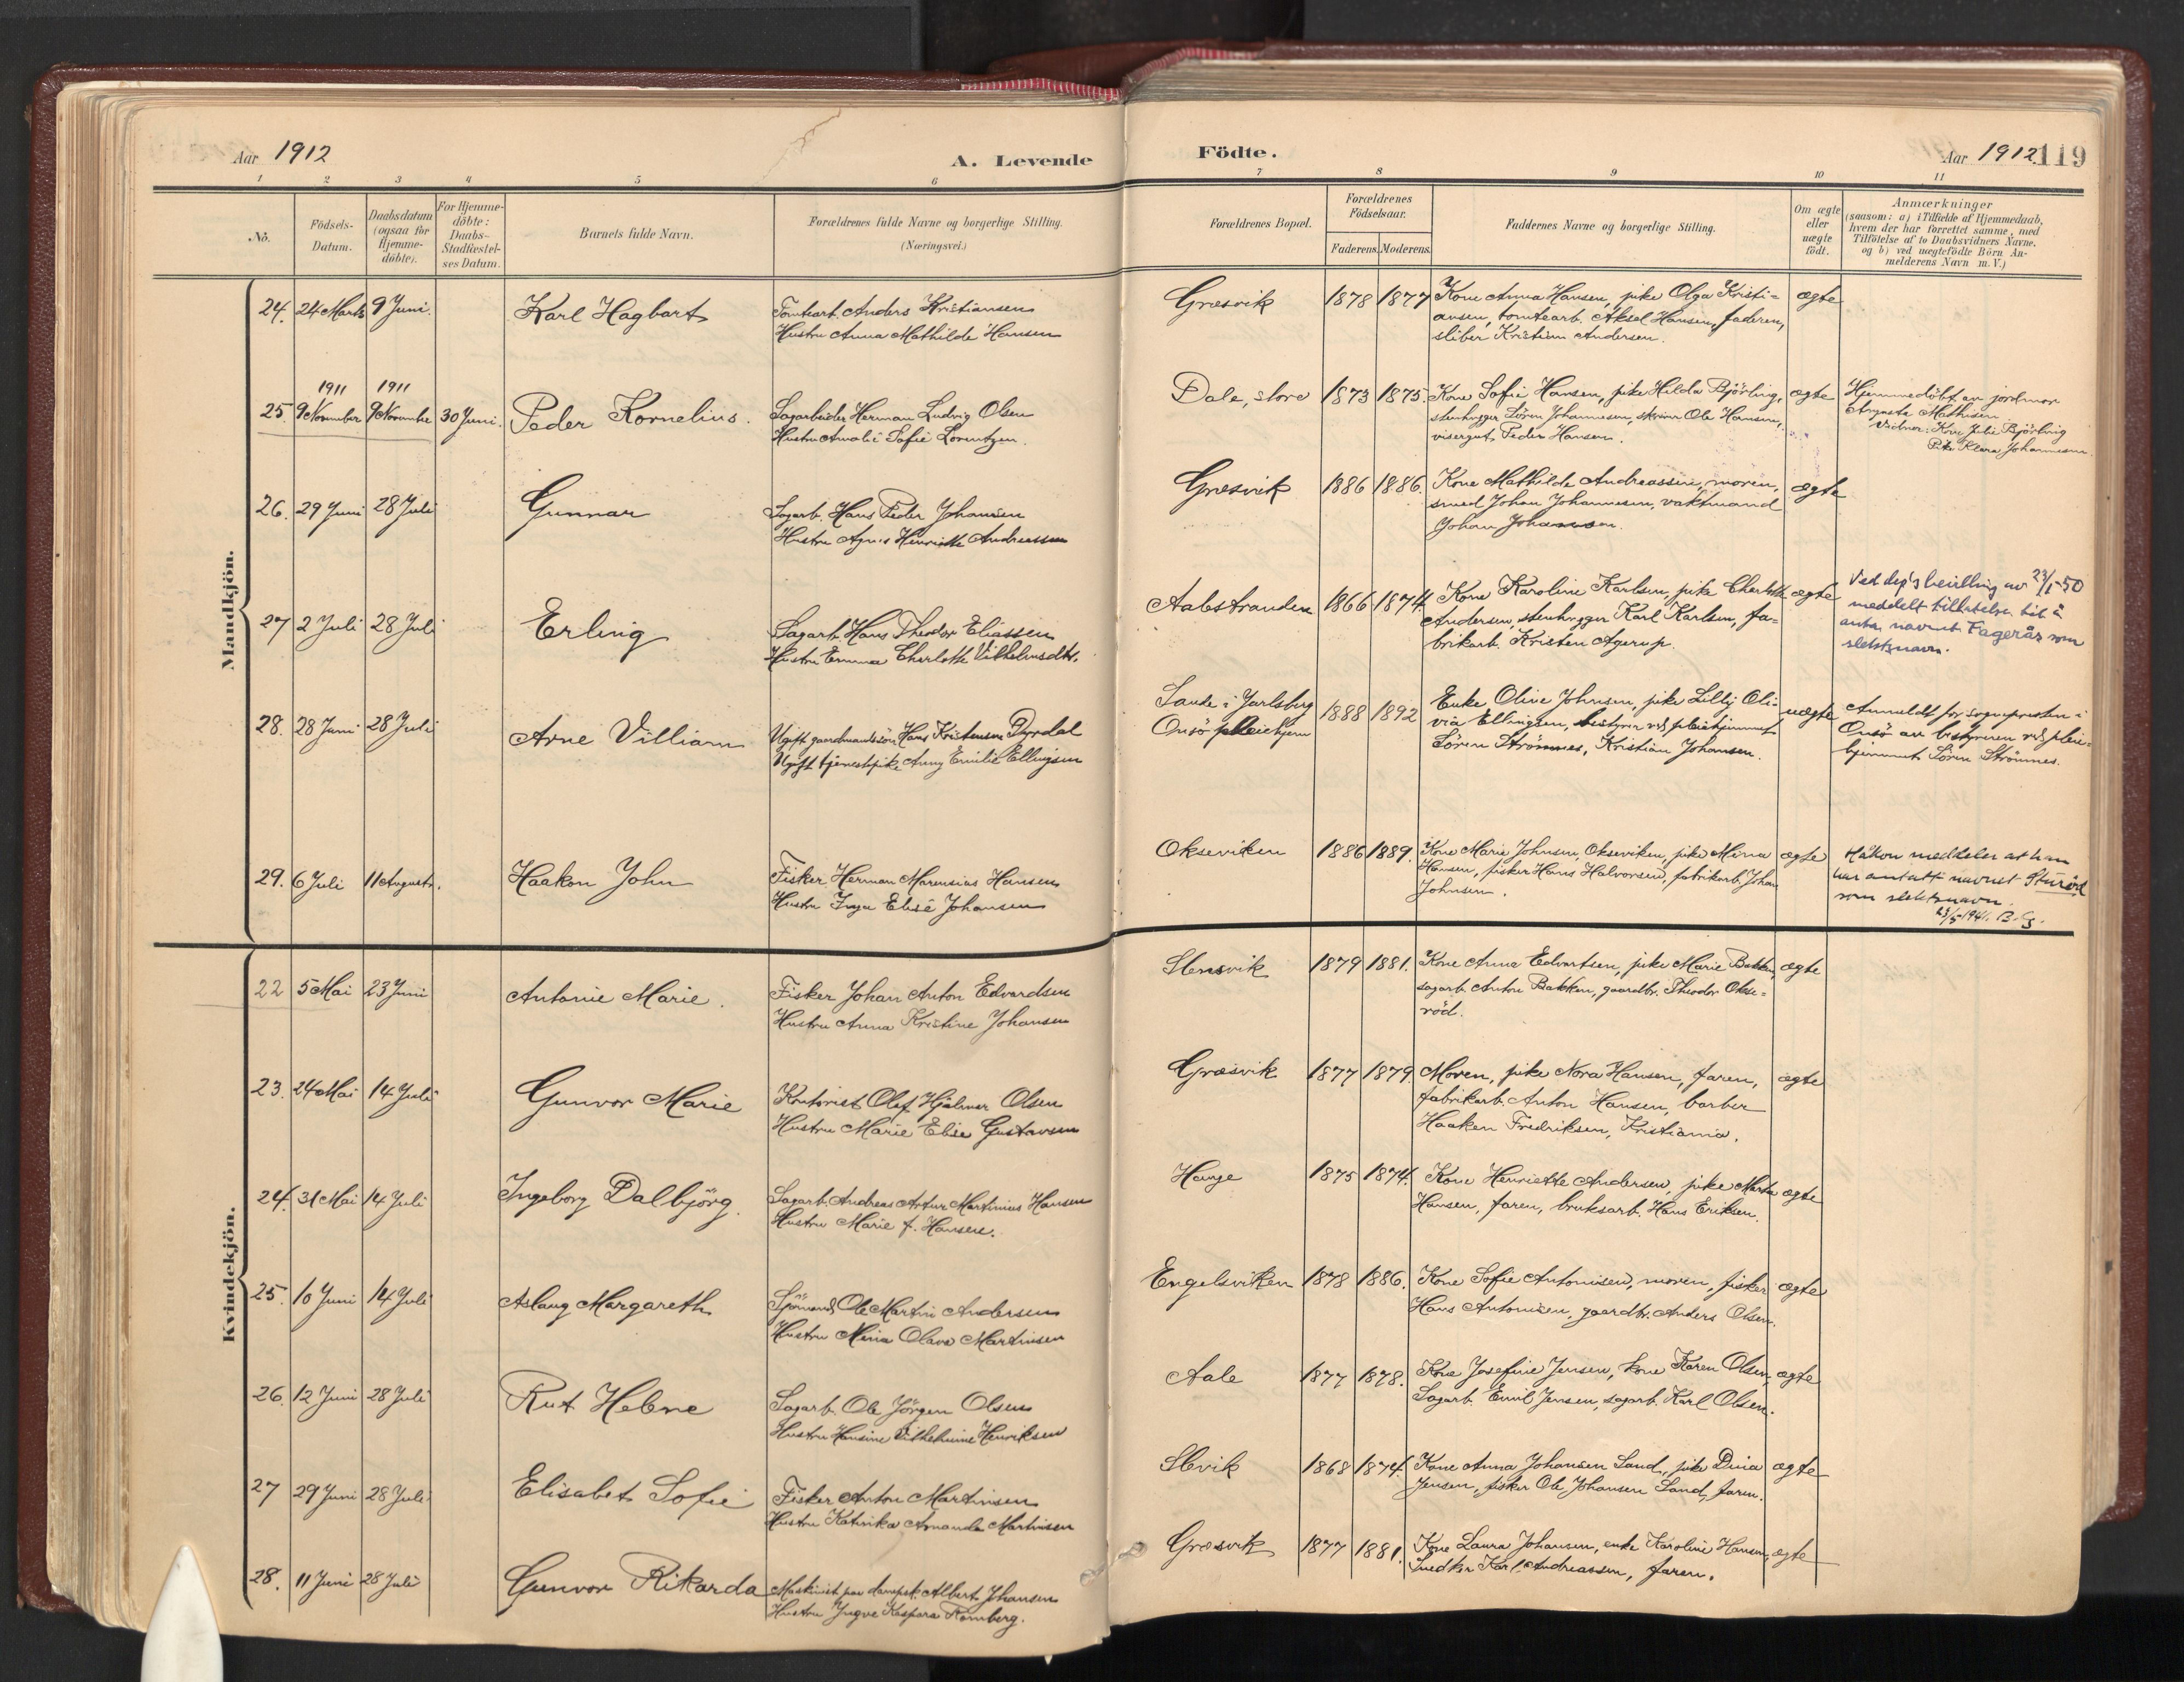 Aar 1912
A. Levende
Födte.
Aar 1912. 119
1 2 3 4 5 6 7 8 9 10 11
No.
Födsels-
Datum.
Daabsdatum
(ogsaa for
Hjemme-
döbte).
For Hjemme-
döbte:
Daabs-
Stadfæstel-
ses Datum.
Barnets fulde Navn.
Forældrenes fulde Navne og borgerlige Stilling.
(Næringsvei.)
Forældrenes Bopæl.
Forældrenes
Födselsaar.
Faderens. Moderens.
Faddernes Navne og borgerlige Stilling.
Om ægte
eller
uægte
født.
Anmærkninger
(saasom: a) i Tilfælde af Hjemmedaab,
hvem der har forrettet samme, med
Tilföielse af to Daabsvidners Navne.
og b) ved uægtefödte Börn An-
melderens Navn m. V.)
Mandkjön.
24. 24 Marts 9 Juni. Karl Hagbart
Tomtearb. Anders Kristiansen
Hustru Anna Mathilde Hansen
Græsvik 1878 1877
Kone Anna Hansen, pike Olga Kristi-
ansen, tomtearb. Aksel Hansen, faderen,
sliber Kristian Andersen.
ægte
1911 1911
25. 9 November 9 November 30 Juni. Peder Kornelius.
Sagarbeider Herman Ludvig Olsen
Hustru Amalie Sofie Lorentzen.
Dale, store 1873 1875.
Kone Sofie Hansen, pike Hilda Björling,
stenhugger Sören Johannesen, Ole Hansen,
visergut Peder Hansen.
ægte
Hjemmedöbt av jordmor
Augusta Mathisen
Vidner: Kone Julie Björling
Pike Klara Johannesen.
26. 29 Juni 28 Juli Gunnar
Sagarb. Hans Peder Johansen
Hustru Agnes Henriette Andreassen
Græsvik 1886 1886.
Kone Mathilde Andreassen, moren,
smed Johan Johannesen, vaktmand
Johan Johansen.
ægte
27 2 Juli 28 Juli Erling
Sagarb. Hans Theodor Eliassen
Hustru Emma Charlotte Vilhelmsdtr.
Aalestranden 1866 1874
Kone Karoline Karlsen, pike Charlotte
Andersen, stenhugger Karl Karlsen, fa-
brikarb. Kristen Agerup.
ægte
Ved dep's bevilling av 23/1-50
meddelt tillatelse til å
anta navnet Fagerås som
slektsnavn.
28. 28 Juni 28 Juli Arne Villiam
Ugift gaardmandssön Hans Kristensen Dyrdal
Ugift tjenestepike Anny Emilie Ellingsen
Sande i Jarlsberg
Onsö pleiehjem
1888 1892
Enke Oline Johnsen, pike Lilly Oli-
via Ellingsen, bestyrer ved pleiehjemmet
Sören Strömnes, Kristian Johansen.
uægte
Anmeldt for sognepresten i
Onsö av bestyreren ved pleie-
hjemmet Sören Strömnes.
29. 6 Juli 11 August. Haakon John
Fisker Herman Marensius Hansen
Hustru Inga Elise Johansen
Okseviken 1886 1889.
Kone Marie Johnsen, Okseviken, pike Mina
Hansen, fisker Hans Halvorsen, fabrikarb. Johan
Johnsen.
ægte
Håkon meddeler at han
har antatt navnet Sturöd
som slektsnavn.
23/5 1941. B. G.
Kvindekjön.
22 5 Mai 23 Juni Antonie Marie.
Fisker Johan Anton Edvardsen
Hustru Anna Kristine Johansen
Slensvik 1879 1881.
Kone Anna Edvartsen, pike Marie Bakken,
sagarb. Anton Bakken, gaardbr. Theodor Okse-
röd.
ægte
23. 24 Mai 14 Juli Gunvor Marie
Kontorist Olef Hjalmar Olsen
Hustru Marie Elise Gustavsen
Græsvik 1877 1879.
Moren, pike Nora Hansen, faren,
fabrikarb. Anton Hansen, barber
Haaken Fredriksen, Kristiania.
ægte
24. 31 Mai 14 Juli Ingeborg Dalbjörg.
Sagarb. Andreas Artur Martinius Hansen
Hustru Marie f. Hansen.
Hauge 1875 1874.
Kone Henriette Andersen, pike Marta
Hansen, faren, bruksarb. Hans Eriksen.
ægte
25. 10 Juni 14 Juli Aslaug Margareth
Sjömand Ole Martin Andersen
Hustru Mina Olava Martinsen
Engelsviken 1878 1886.
Kone Sofie Antonisen, moren, fisker
Hans Antonisen, gaardbr. Anders Olsen.
ægte
26. 12 Juni 28 Juli Rut Helene
Sagarb. Ole Jörgen Olsen
Hustru Hansine Vilhelmine Henriksen
Aale 1877 1878.
Kone Josefine Jensen, kone Karen Olsen,
Sagarb. Emil Jensen, sagarb. Karl Olsen.
ægte
27 29 Juni 28 Juli Elisabet Sofie
Fisker Anton Martinsen
Hustru Katinka Amanda Martinsen
Slevik 1868 1874.
Kone Anna Johansen Sand, pike Dina
Jensen, fisker Ole Johansen Sand, faren.
ægte
28. 11 Juni 28 Juli Gunvor Rikarda
Maskinist paa dampsk. Albert Johansen
Hustru Yngve Kaspara Romberg.
Græsvik 1877 1881.
Kone Laura Johansen, enke Karoline Hansen,
Snedker Karl Andreassen, faren.
ægte